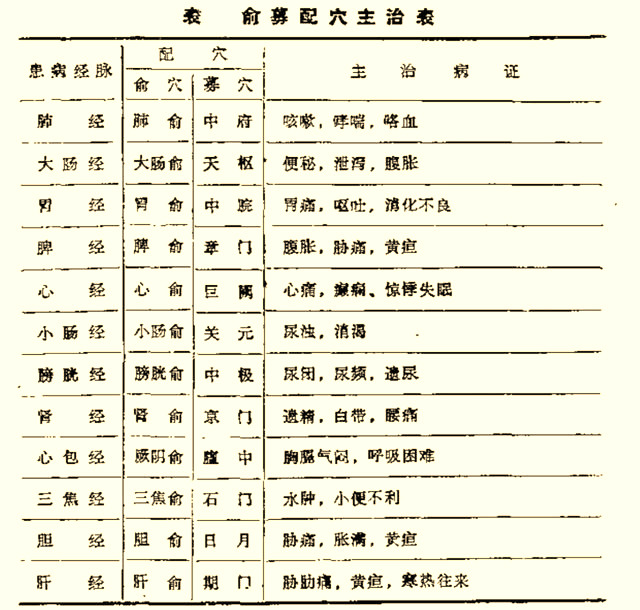 表 俞募配穴主治表
患病经脉 配穴 主治病证
俞穴 募穴
肺经 肺俞 中府 咳嗽，哮喘，咯血
大肠经 大肠俞 天枢 便秘，泄泻，腹胀
胃经 胃俞 中脘 胃痛，呕吐，消化不良
脾经 脾俞 章门 腹胀，胁痛，黄疸
心经 心俞 巨阙 心痛，癫痫、惊悸失眠
小肠经 小肠俞 关元 尿浊，消渴
膀胱经 膀胱俞 中极 尿闭，尿频，遗尿
肾经 肾俞 京门 遗精，白带，腰痛
心包经 厥阴俞 膻中 胸膈气闷，呼吸困难
三焦经 三焦俞 石门 水肿，小便不利
胆经 胆俞 日月 胁痛，胀满，黄疸
肝经 肝俞 期门 胁肋痛，黄疸，寒热往来